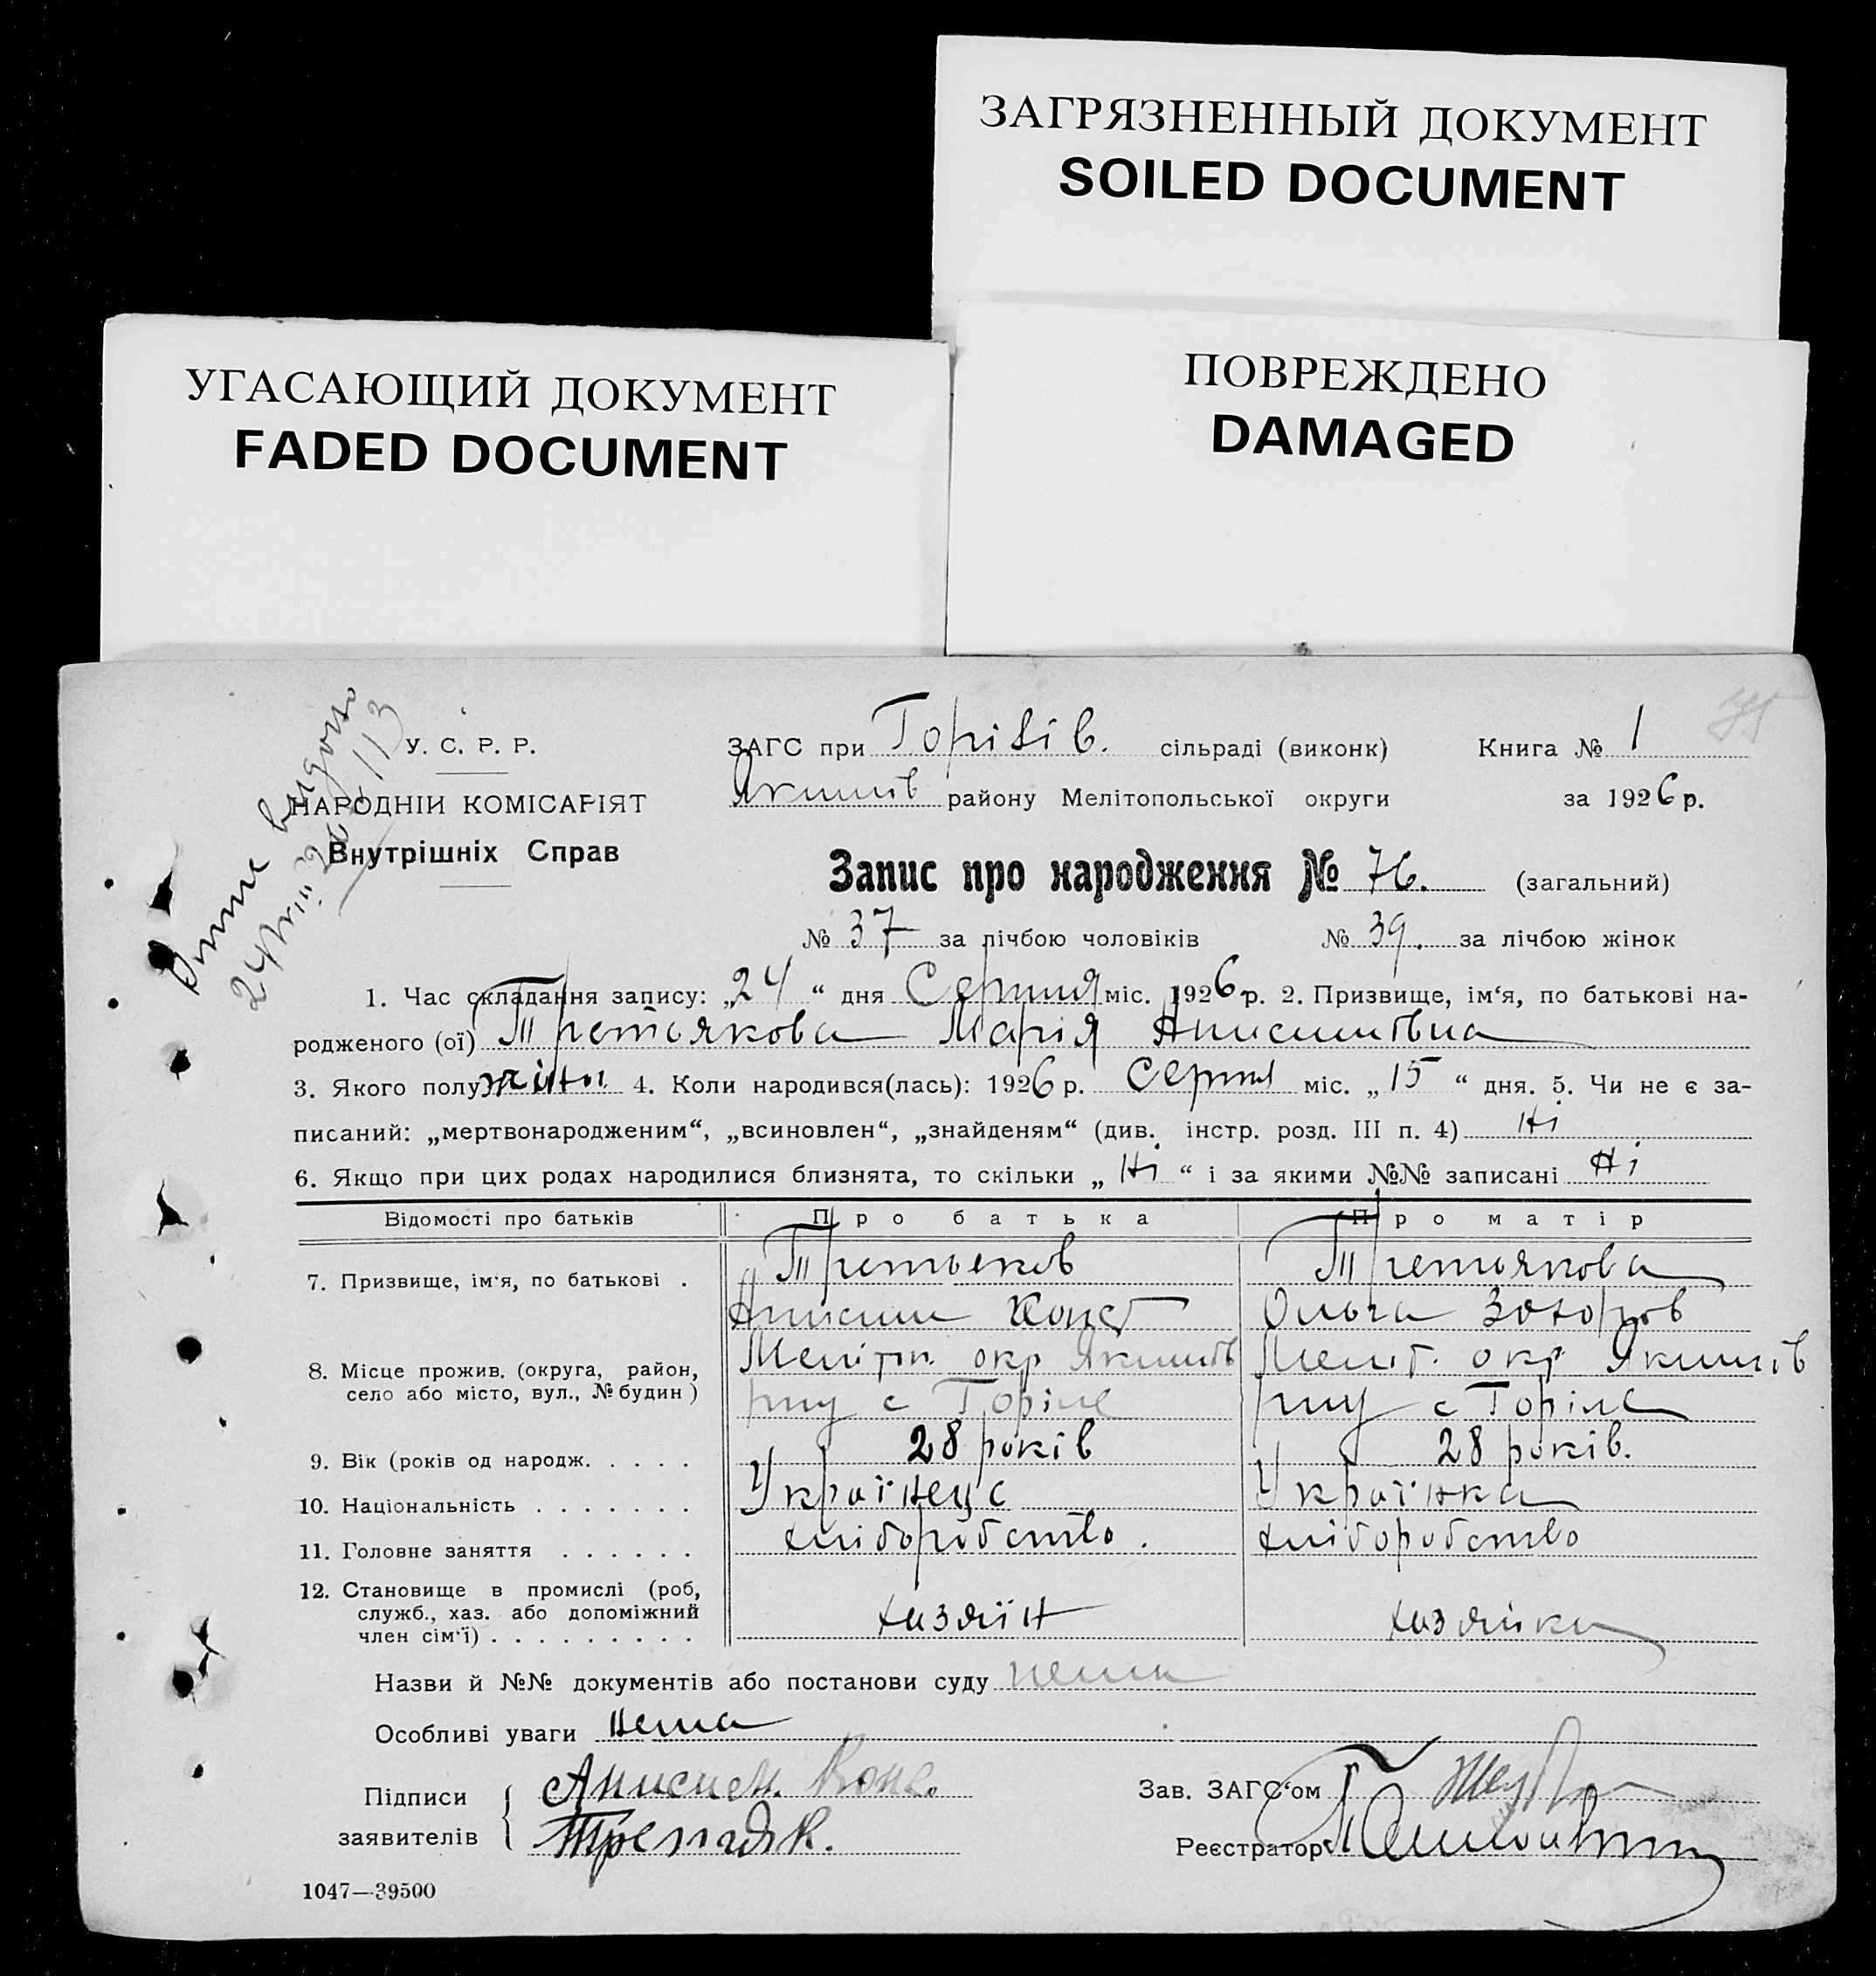 ЗАГРЯЗНЕННЫЙ ДОКУМЕНТ
SOILED DOCUMENT
УГАСАЮЩИЙ ДОКУМЕНТ
FADED DOCUMENT
ПОВРЕЖДЕНО
DAMAGED
У. С. Р. Р.
НАРОДНІЙ КОМІСАРІЯТ
Внутрішніх Справ
ЗАГС при Горілів. сільраді (виконк) Книга № 1
Якимів району Мелітопольської округи за 1926 р.
Запис про народження № 76. (загальний)
№ 37 за лічбою чоловіків № 39. за лічбою жінок
1. Час складання запису: „24“ дня Серпня міс. 1926 р. 2. Призвище, ім‘я, по батькові на-
родженого (ої) Третьякова Марія Анисимівна
3. Якого полу жіночі 4. Коли народився(лась): 1926 р. Серпня міс. „15“ дня. 5. Чи не є за-
писаний: „мертвонародженим“, „всиновлен“, „знайденям“ (див. інстр. розд. III п. 4) Ні
6. Якщо при цих родах народилися близнята, то скільки „Ні“ і за якими №№ записані Ні
Відомості про батьків Про батька Про матір
7. Призвище, ім‘я, по батькові . Третьяков Третьякова
Анисим Конст Ольга Захоров
8. Місце прожив. (округа, район, село або місто, вул., № будин) Меліт. окр Якимів Меліт. окр Якимів
рну с Горіле рну с Горіле
9. Вік (років од народж. . . . . 28 років 28 років.
10. Національність . . . . . . . Українець Українка
11. Головне заняття . . . . . . хліборобство. хліборобство
12. Становище в промислі (роб, служб., хаз. або допоміжний член сім‘ї) . . . . . . . . . хазяїн хазяйка
Назви й №№ документів або постанови суду нема
Особливі уваги нема
Підписи заявителів Анисим. Конс.
Третяк.
Зав. ЗАГС‘ом
Реєстратор
1047—39500